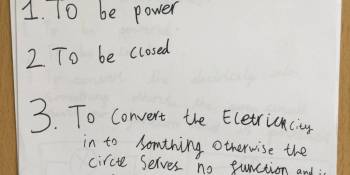 1. TO be power
2. To be closed
3. To convert the Eletrickcity
in to Somthing otherwise the
circte serves no function and i